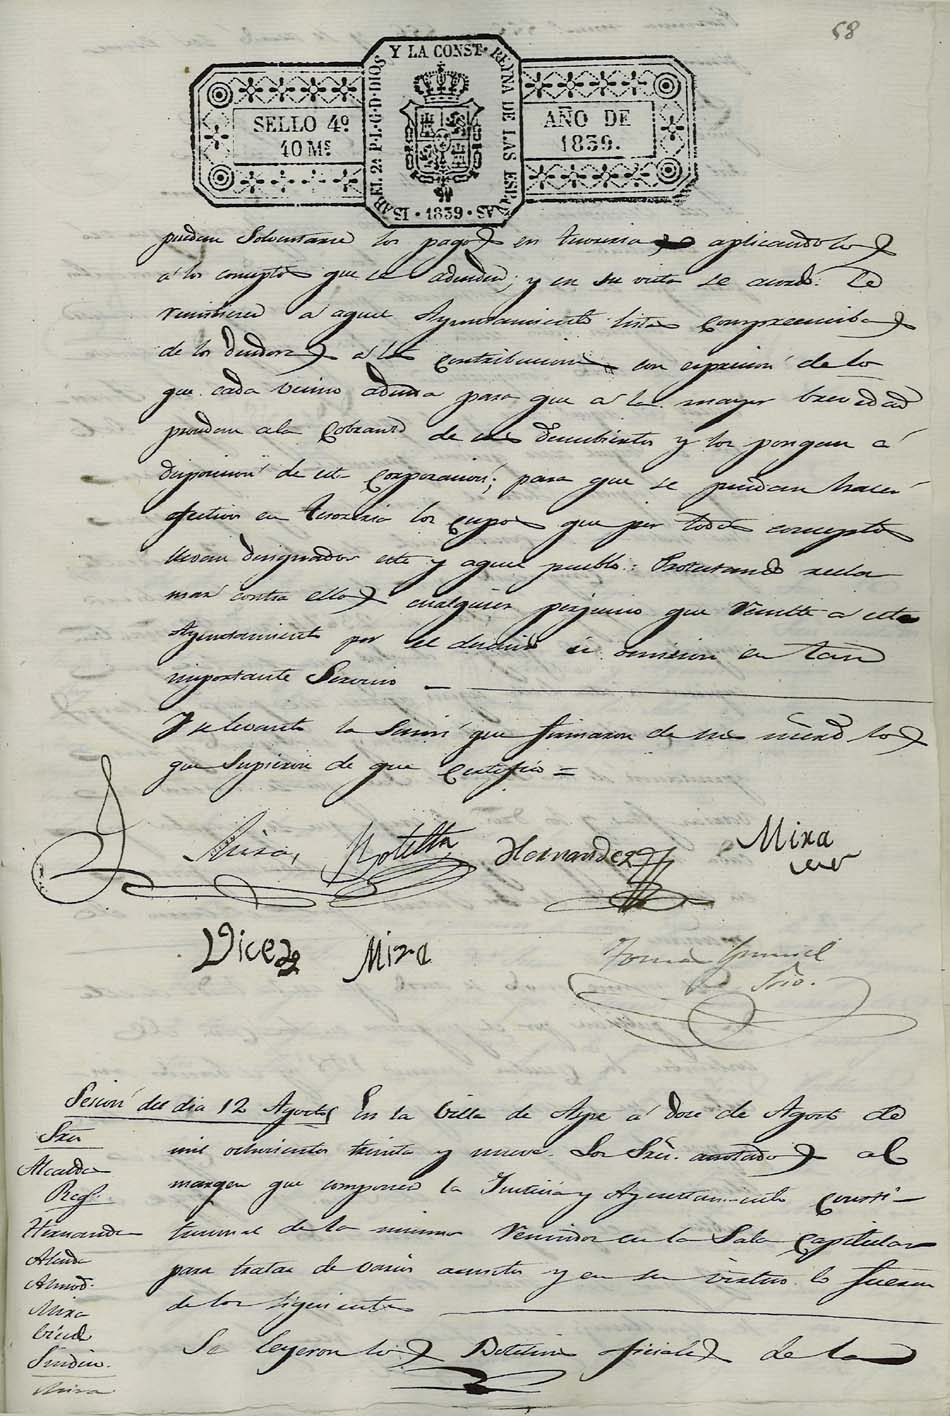 68
ISABEL 2ª P.L.G.D.DIOS Y LA CONST. REYNA DE LAS ESPAÑAS
SELLO 4º
10 Mˢ
AÑO DE
1839.
· 1839 ·
puedan solventarse los pagos en tesoreria aplicandolos
á los conceptos que se adeuden; y en su vista se acordó: Se
á aquel Ayuntamiento listas comprensibas
de los deudores á las contribuciones con expresion de lo
que cada vecino adeuda para que á la mayor brevedad
procedan a la cobranza de sus descubiertos y los pongan á
disposicion de esta corporacion; para que se puedan hacer
efectivos en tesoreria los cupos que por todos conceptos
llevan designados este y aquel pueblo: Protestando recla
mar contra ellos cualquier perjuicio que resulte á este
Ayuntamiento por el descuido ú omision en tan
importante Servicio
Y se levantó la Sesion que firmaron de sus mercedˢ los
que supieron de que Certifico =
Mira, Botella Hernandez Mira
Vicedo Mira
Srio.
Sesion del dia 12 Agosto En la Villa de Aspe á doce de Agosto de
mil ochocientos treinta y nueve. Los Sres. anotados al
margen que componen la Justicia y Ayuntamiento consti-
tucional de la misma reunidos en la Sala capitular
para tratar de varios asuntos y en su virtud lo fueron
de los siguientes
Sres
Alcalde
Reg.
Hernandez
Almod.
Mira
Vicedo
Sindico.
Mira
Se leyeron los Boletines oficiales de la